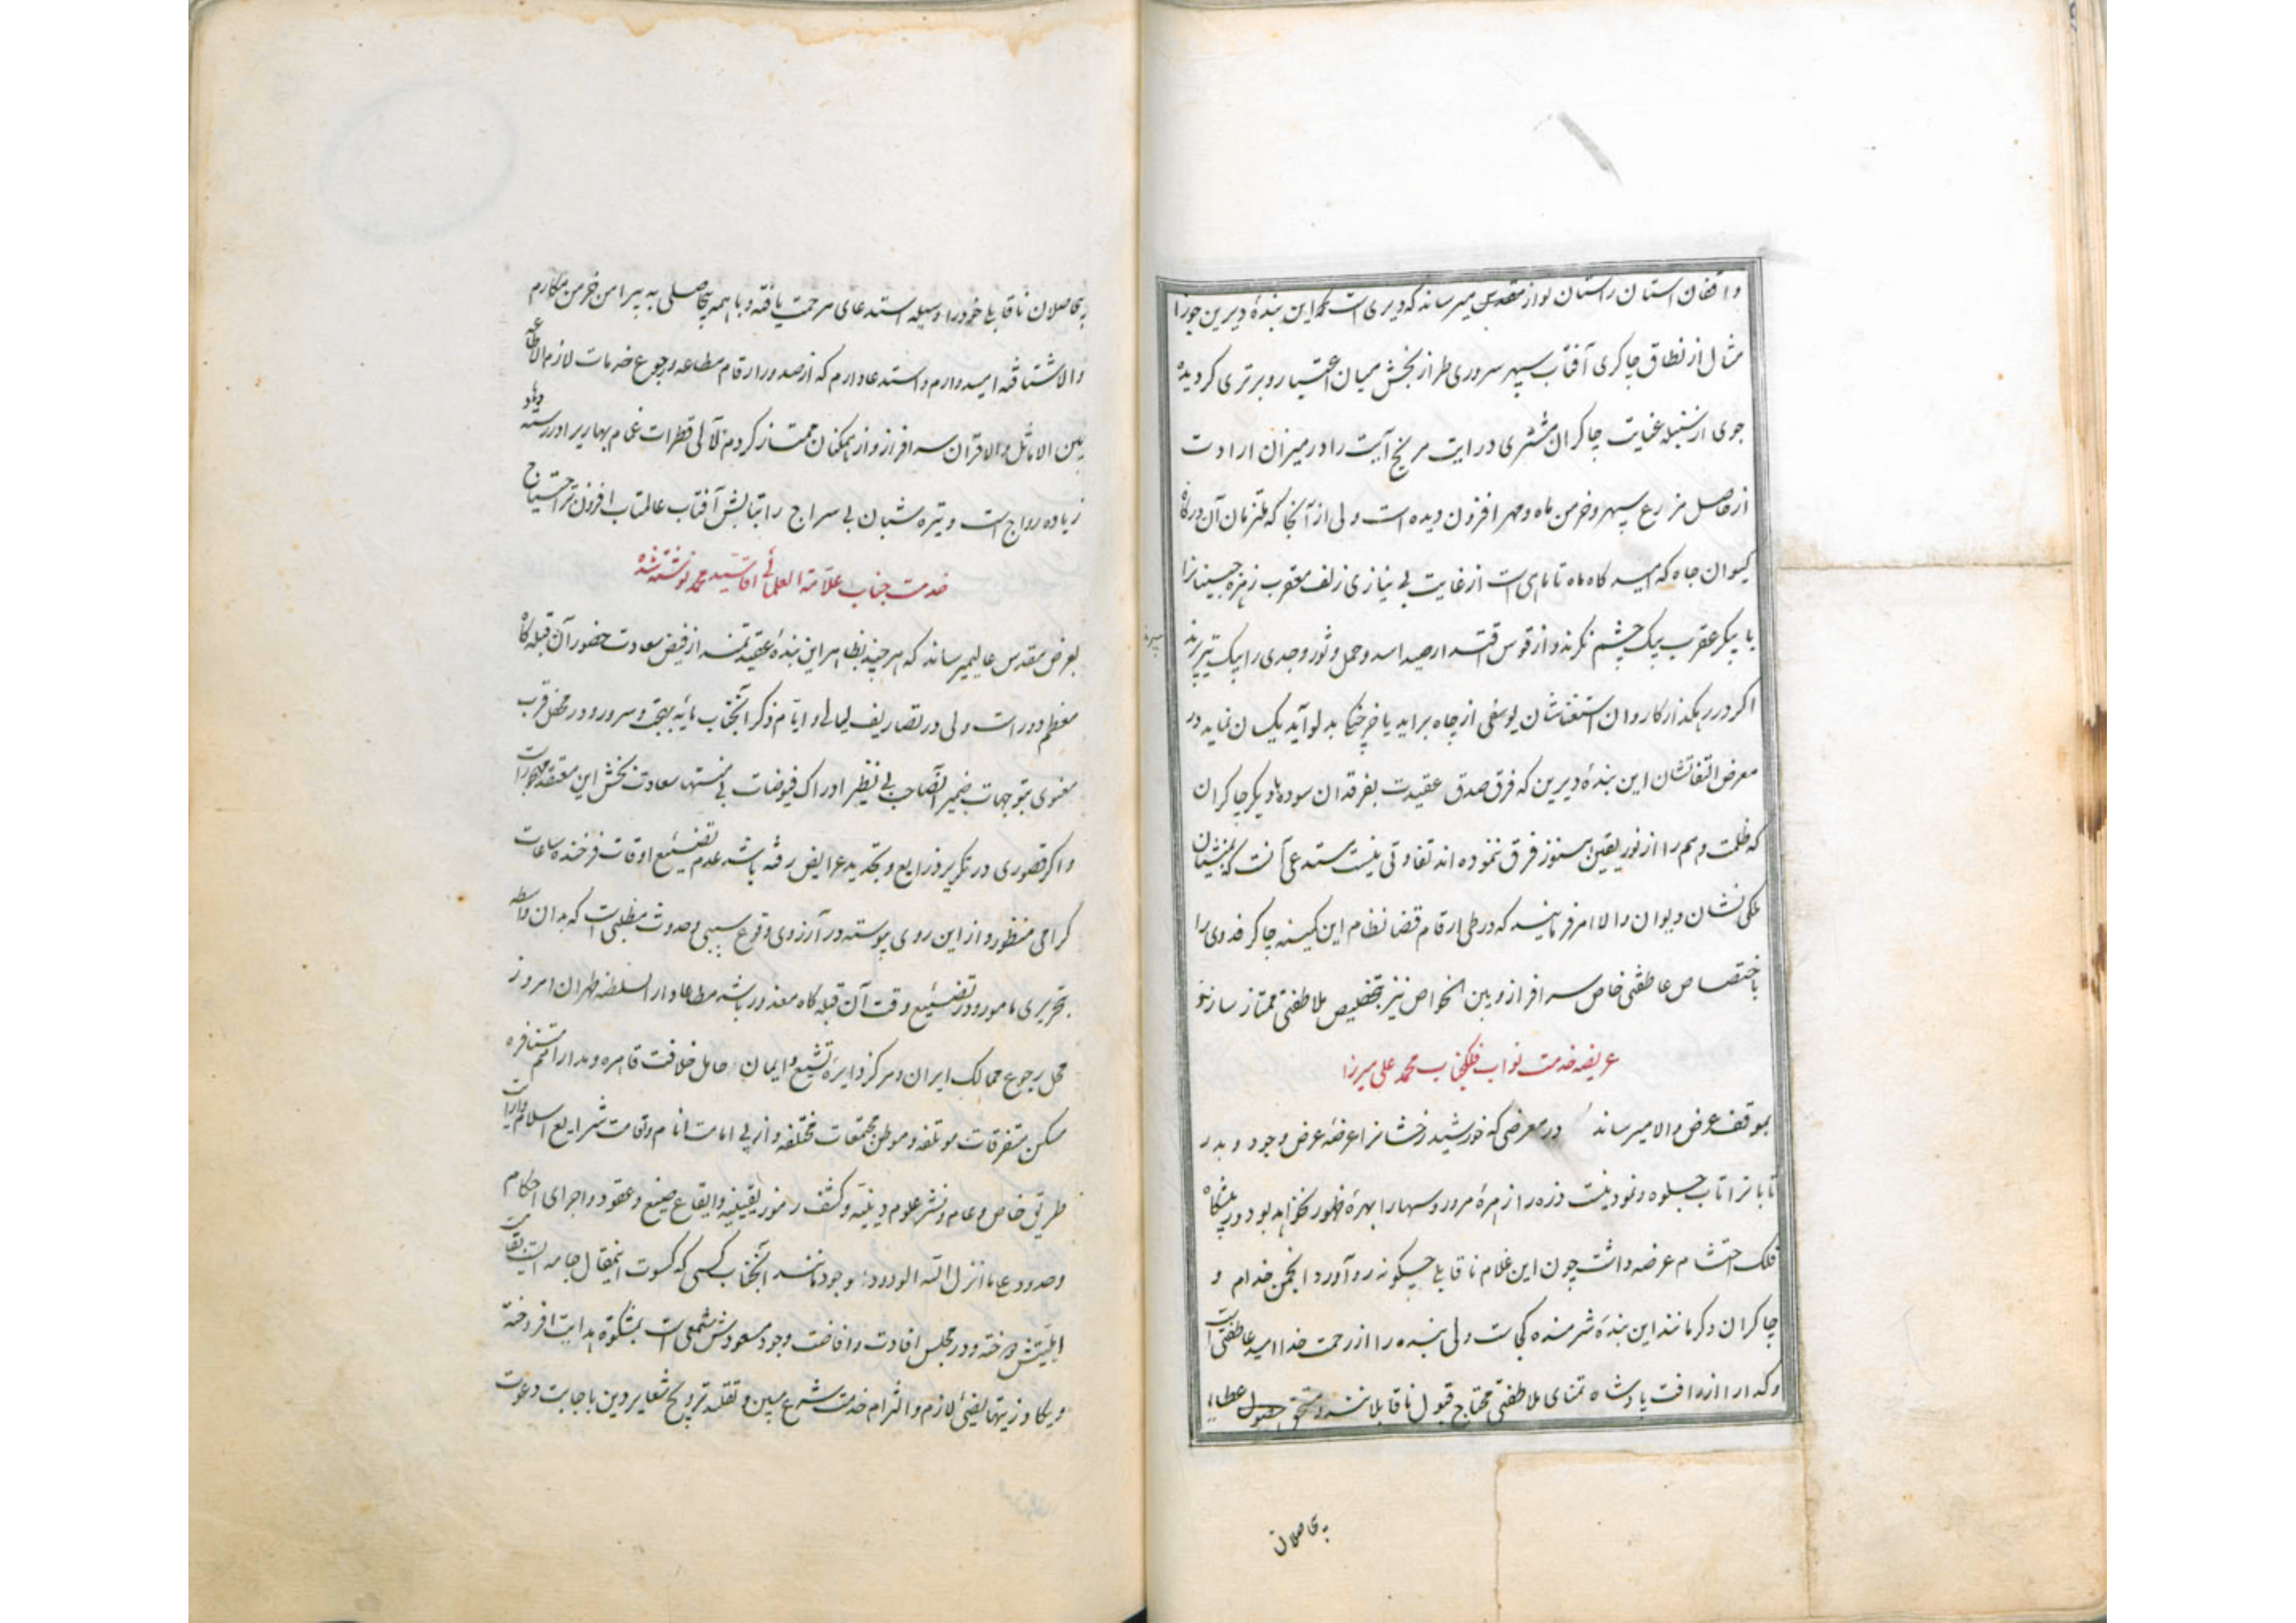 واقفان آستان راستان نواز مقدس میرساند که دیری است که این بندهٔ دیرین جوزا
مثال از نطاق چاکری آفتاب سپهر سروری طراز بخش میان اعتبار و برتری کردیده
جوی از سنبله عنایت چاکران مشتری درایت مریخ آیت را در میزان ارادت
از حاصل مزارع سپهر و خرمن ماه و مهر افزون دیده است ولی از آنجا که ملتزمان آن درکاه
کیوان جاه که امیدکاه ماه تا ماهی است از غایت بی نیازی زلف معقرب زهره جبینانرا
با پیکر عقرب بیک چشم نکرند و از قوس اقتدار صید اسد و حمل و ثور و جدی را بیک تیر برند
اکر در رهکذار کاروان استغناشان یوسفی از چاه براید یا خرچنک بدلو آید یکسان نماید در
معرض التفاتشان این بندهٔ دیرین که فرق صدق عقیدت بفرقدان سوده با دیکر چاکران
که ظلمت وهم را از نور یقین هنوز فرق ننموده اند تفاوتی نیست مستدعی آنست که منشیان
ملکی نشان دیوان والا امر فرمایند که در طی ارقام قضا نظام این کمینه چاکر فدوی را
باختصاص عاطفتی خاص سرافراز و بین الخواص نیز بتخصیص ملاطفتی ممتاز سازند
عریضه خدمت نواب فلکجناب محمد علی میرزا
بموقف عرض والا میرساند در معرضی که خورشید رخشانرا عرضهٔ عرض وجود و بدر
تابانرا تاب جلوه و نمود نیست ذره را زهرهٔ مرور و سها را بهرهٔ ظهور نخواهد بود در پیشکاه
فلک احتشام عرضه داشت چون این غلام ناقابل چکونه رو آورد انجمن خدام و
چاکران و کر مانند این بندهٔ شرمنده کجاست ولی بنده را از رحمت خدا امید عاطفتی است
و کدا را از رافت پادشاه تمنای ملاطفتی محتاج قبول ناقابلانند و مستحق حصول عطا
بیحاصلان
بیحاصلان ناقابلی خود را وسیله استدعای مرحمت یافته و با همه بیحاصلی به پیرامن خرمن مکارم
والا شتافته امیدوارم و استدعا دارم که از صدور ارقام مطاعه و رجوع خدمات لازم الاطاعه
بین الاماثل والاقران سرافراز و از همکنان ممتاز کردم لآلی قطرات غمام بهاریرا در رسته
زیاده رواج است و تیره شبان بی سراج را بتابش آفتاب عالمتاب افزون تر احتیاج
خدمت جناب علامة العلمائی آقا سید محمد نوشته شده
بعرض مقدس عالی میرساند که هر چند بظاهر این بندهٔ عقیدتمند از فیض سعادت حضور آن قبله کاه
معظم دور است ولی در تصاریف لیالی و ایام ذکر آنجناب مایه بهجت و سرور و در محفل قرب
معنوی بتوجهات ضمیر آنصاحب بی نظیر ادراک فیوضات بی منتها سعادت بخش این معتقد مهجور است
و اکر قصوری در تکریر ذرایع و تجدید عرایض رفته باشد عدم تضییع اوقات فرخنده ساعات
کرامی منظور و از این روی پیوسته در آرزوی وقوع سببی و حدوث مطلبی است که بدان واسطه
بتحریری مامور و در تضییع وقت آن قبله کاه معذور باشد مطاعا دار السلطنه طهران امروز
محل رجوع ممالک ایران و مرکز دایرهٔ تشیع و ایمان حامل خلافت قاهره و مدار امم متنافره
مسکن متفرقات مؤتلفه و موطن مجتمعات مختلفه و از پی امامت انام و اقامت شرایع اسلام و ارائت
طریق خاص و عام و نشر علوم دینیه و کشف رموز یقینیه و ایقاع صیغ و عقود و اجرای احکام
وحدود عما انزل الله الودود وجود مانند آنجناب کسی که کسوت اینمقال جامه ایست بقامت
اهلیتش دوخته و در مجلس افادت و افاضت وجود مسعودش شمعی است بمشکوة هدایت افروخته